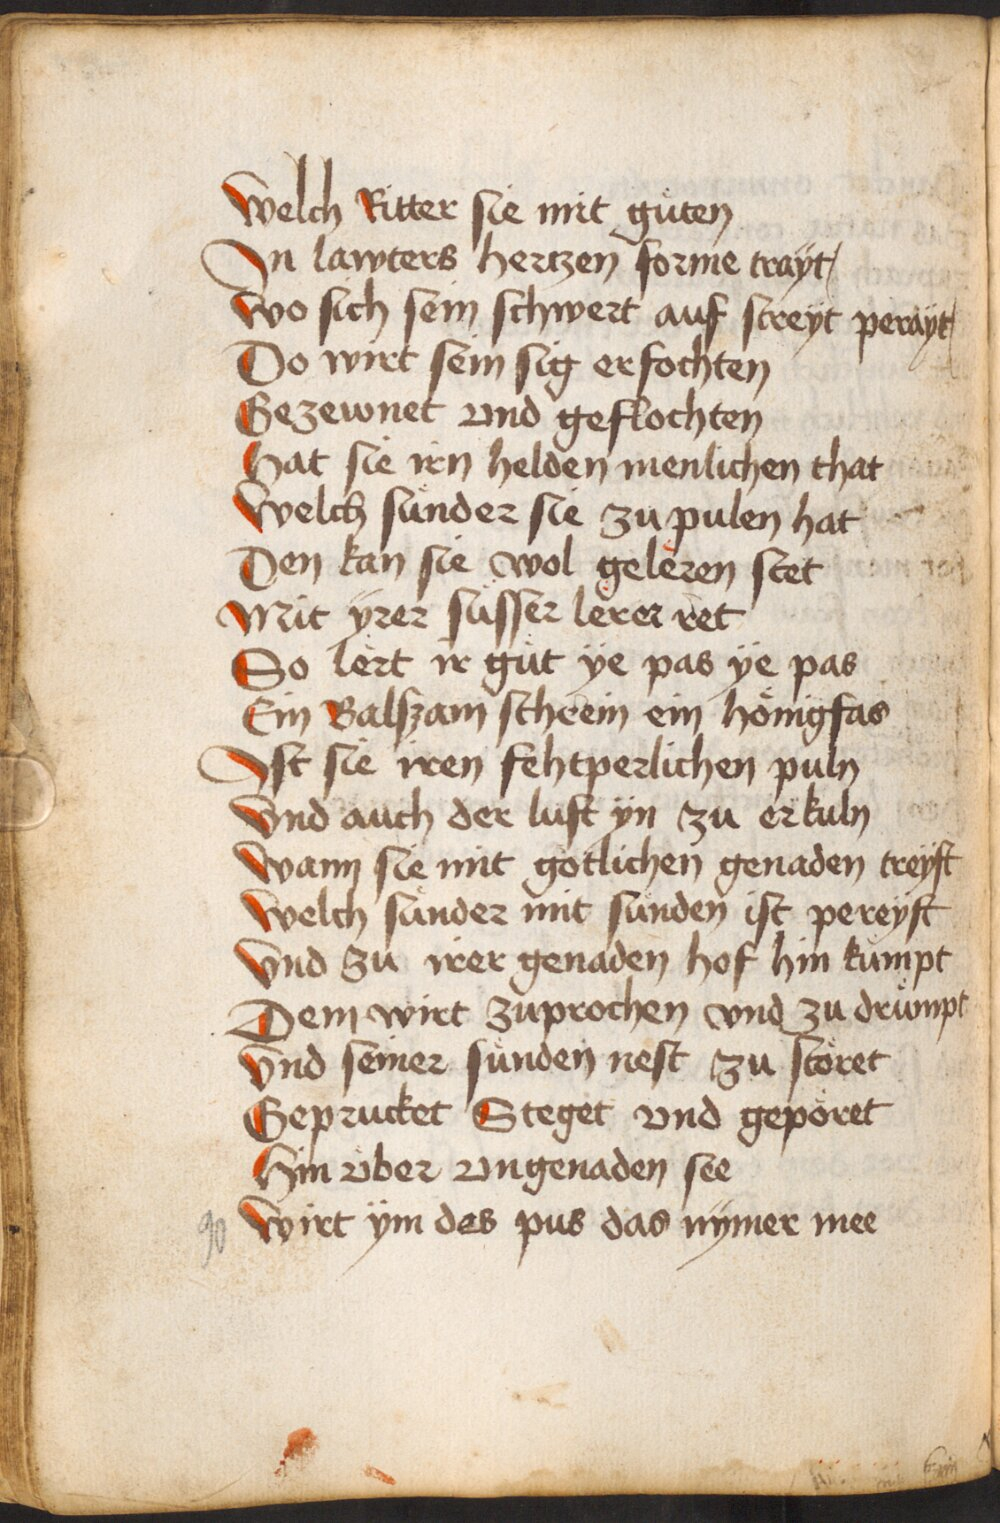 Welch Ritter sie mit gůten
In lawters hertzen forme trayt
Wo sich sein schwert auf streyt perayt
Do wirt sein sig erfochten
Gezewnet vnd geflochten
Hat sie irn helden menlichen that
Welch sünder sie zu pulen hat
Den kan sie wol geleren stet
Mit yrer süsser lerer ret
So lert ir güt ÿe pas ÿe pas
Ein Balszam schrein ein hönigfas
Ist sie iren fehtperlichen puln
Vnd auch der lust yn zu erkuln
Wann sie mit gotlichen genaden treyft
Welch sünder mit sünden ist pereyft
Vnd zu irer genaden hof hin kumpt
Dem wirt zuprochen vnd zu drümpt
Vnd seiner sünden nest zu störet
Geprucket Steget vnd gepöret
Hin vber vngenaden see
Wirt ÿm des pus das nÿmer mee
90